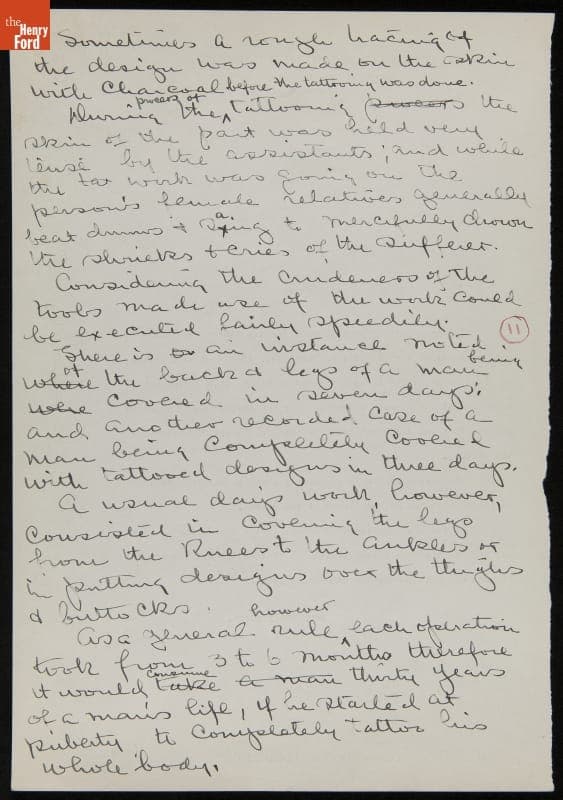 the
Henry
Ford
Sometimes a rough tracing of
the design was made on the skin
with charcoal before the tattooing was done.
During the process of tattooing process the
skin of the part was held very
tense by the assistants; and while
the tat work was going on the
person's female relatives generally
beat drums & sang to mercifully drown
the shrieks & cries of the sufferer.
Considering the crudeness of the
tools made use of the work could
be executed fairly speedily.
11
There is an instance noted
where of the back & legs of a man being
were covered in seven days;
and another recorded case of a
man being completely covered
with tattooed designs in three days.
A usual day's work, however,
consisted in covering the legs
from the knees to the ankles or
in putting designs over the thighs
& buttocks.
As a general rule, however each operation
took from 3 to 6 months therefore
it would take consume a man thirty years
of a man's life, if he started at
puberty to completely tattoo his
whole body.